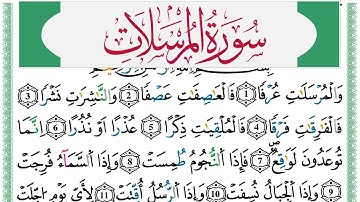 سُورَةُ المُرسَلَات
وَالْمُرْسَلَاتِ عُرْفًا ١ فَالْعَاصِفَاتِ عَصْفًا ٢ وَالنَّاشِرَاتِ نَشْرًا ٣
فَالْفَارِقَاتِ فَرْقًا ٤ فَالْمُلْقِيَاتِ ذِكْرًا ٥ عُذْرًا أَوْ نُذْرًا ٦ إِنَّمَا
تُوعَدُونَ لَوَاقِعٌ ٧ فَإِذَا النُّجُومُ طُمِسَتْ ٨ وَإِذَا السَّمَاءُ فُرِجَتْ
٩ وَإِذَا الْجِبَالُ نُسِفَتْ ١٠ وَإِذَا الرُّسُلُ أُقِّتَتْ ١١ لِأَيِّ يَوْمٍ أُجِّلَتْ